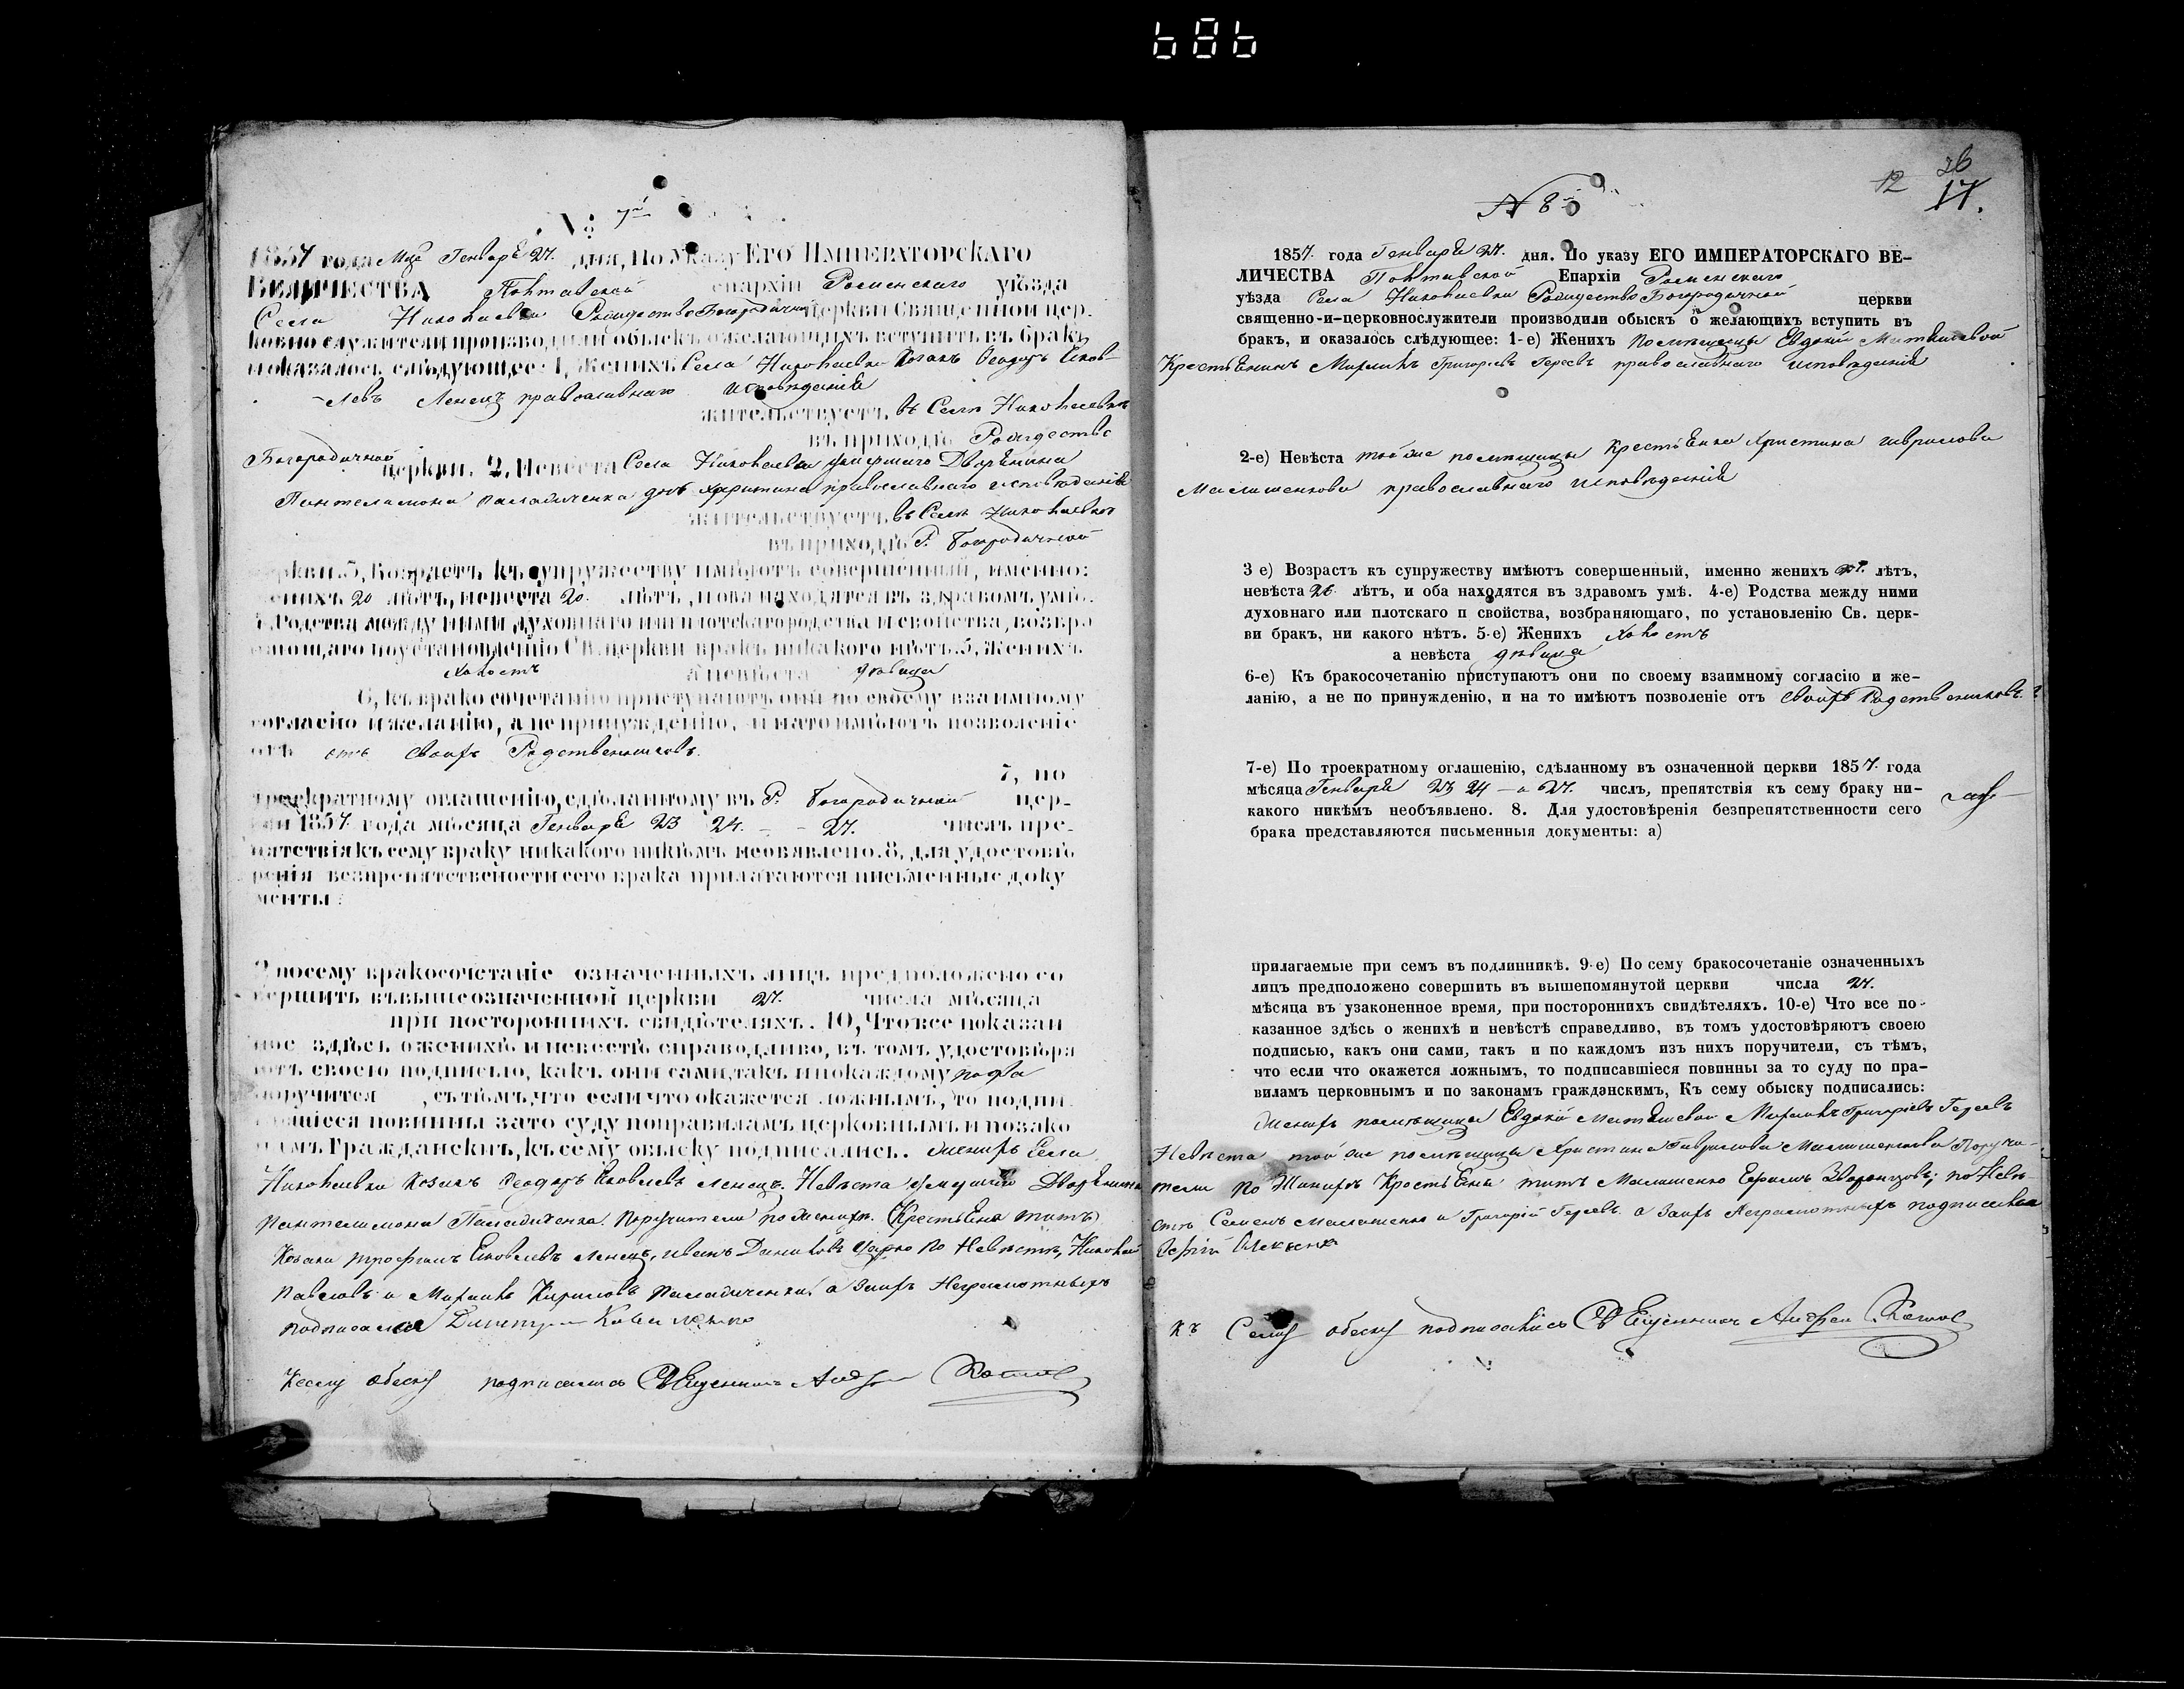 686
№ 7й
1857 года Мца Генваря 27. дня, По Указу Его Императорскаго
Величества Полтавской епархіи Роменскаго уѣзда
Села Николаевки Рождество Богородичной церкви Священной цер-
ковно служители производили обыскъ о желающихъ вступить въ бракъ
и оказалось слѣдующее: 1, Женихъ Села Николаевки Козакъ Феодоръ Яков-
левъ Ленецъ православнаго исповѣданія
жительствуетъ въ Селѣ Николаевкѣ
въ приходѣ Рождество
Богородичной церкви. 2, Невеста Села Николаевки умершаго Дворянина
Пантелеимона Паладиченка дочь Христина православнаго исповѣданія
жительствуетъ въ Селѣ Николаевкѣ
въ приходѣ Р. Богородичной
церкви. 3, Возрастъ къ супружеству имѣютъ совершенный, именно:
женихъ 20 лѣтъ, невеста 20. лѣтъ, и оба находятся въ здравомъ умѣ.
4, Родства между ними духовнаго или плотскаго родства и свойства, возбра
няющаго по установленію Св. церкви бракъ никакого нѣтъ. 5, Женихъ
холостъ а невѣста дѣвица
6, къ брако сочетанію приступаютъ они по своему взаимному
согласію и желанію, а не принужденію, и на то имѣютъ позволеніе
отъ отъ своихъ Родственниковъ.
7, по
троекратному оглашенію, сдѣланному въ Р. Богородичной цер-
кви 1857 года мѣсяца Генваря 23 24. – – 27. числъ пре-
пятствія къ сему браку никакого никѣмъ необявлено. 8, для удостовѣ
ренія безпрепятствености сего брака прилагаются письменные доку
менты:
9 посему бракосочетаніе означенныхъ лицъ предположено со
вершить въ вышеозначенной церкви 27. числа мѣсяца
при посторонныхъ свидѣтеляхъ. 10, Что все показан
ное здѣсь о женихѣ и невестѣ справодливо, въ томъ удостовѣря
ютъ своею подписью, какъ они сами, такъ и по каждому
поручится, съ тѣмъ, что если что окажется ложнымъ, то подпи
савшіеся повинны за то суду по правиламъ церковнымъ и по зако
намъ Гражданскимъ, къ сему обыску подписались. Женихъ Села
Николаевки Козакъ Феодоръ Яковлевъ Ленецъ. Невѣста умершаго Дворянина
Пантелимона Паладиченка. Поручители по Женихѣ. Крестьяна Титъ
Козаки Трофимъ Яковлевъ Ленецъ, Иванъ Даниловъ по Невѣстѣ, Николай
Павловъ и Михаилъ Кириловъ Паладиченки. а Заихъ Неграмотныхъ
подписался
Ксему обыску подписались Священникъ Андрей
№ 8й
12 26
17.
1857. года Генваря 27. дня. По указу ЕГО ИМПЕРАТОРСКАГО ВЕ-
ЛИЧЕСТВА Полтавской Епархіи Роменскаго
уѣзда Села Николаевки Рождество Богородичной церкви
священно-и-церковнослужители производили обыскъ о желающихъ вступить въ
бракъ, и оказалось слѣдующее: 1-е) Женихъ Помѣщицы Евдокіи
Крестьянинъ Михаилъ Григорьевъ православнаго исповѣданія
2-е) Невѣста той же помѣщицы Крестьянка Христина Гаврилова
Малашенкова православнаго исповѣданія
3 е) Возрастъ къ супружеству имѣютъ совершенный, именно женихъ лѣтъ,
невѣста 26 лѣтъ, и оба находятся въ здравомъ умѣ. 4-е) Родства между ними
духовнаго или плотскаго п свойства, возбраняющаго, по установленію Св. церк-
ви бракъ, ни какого нѣтъ. 5-е) Женихъ холостъ
а невѣста дѣвица
6-е) Къ бракосочетанію приступаютъ они по своему взаимному согласію и же-
ланію, а не по принужденію, и на то имѣютъ позволеніе отъ своихъ Родственниковъ.
7-е) По троекратному оглашенію, сдѣланному въ означенной церкви 1857. года
мѣсяца Генваря 23 24 – а 27. числъ, препятствія къ сему браку ни-
какого никѣмъ необъявлено. 8. Для удостовѣренія безпрепятственности сего
брака представляются письменныя документы: а)
прилагаемые при семъ въ подлинникѣ. 9-е) По сему бракосочетаніе означенныхъ
лицъ предположено совершить въ вышепомянутой церкви числа 27.
мѣсяца въ узаконенное время, при постороннихъ свидѣтеляхъ. 10-е) Что все по-
казанное здѣсь о женихѣ и невѣстѣ справедливо, въ томъ удостовѣряютъ своею
подписью, какъ они сами, такъ и по каждомъ изъ нихъ поручители, съ тѣмъ,
что если что окажется ложнымъ, то подписавшіеся повинны за то суду по пра-
виламъ церковнымъ и по законамъ гражданскимъ, Къ сему обыску подписались:
Женихъ помѣщицы Евдокіи Михаилъ Григоріевъ
Невѣста той же помѣщицы Христина Гаврилова Малашенкова Поручи-
тели по Жинихѣ Крестьяна Титъ Малашенко по Невѣ-
стѣ Семенъ Малашенко и Григорій а Заихъ Неграмотныхъ подписался
къ Сему обыску подписались Священникъ Андрей